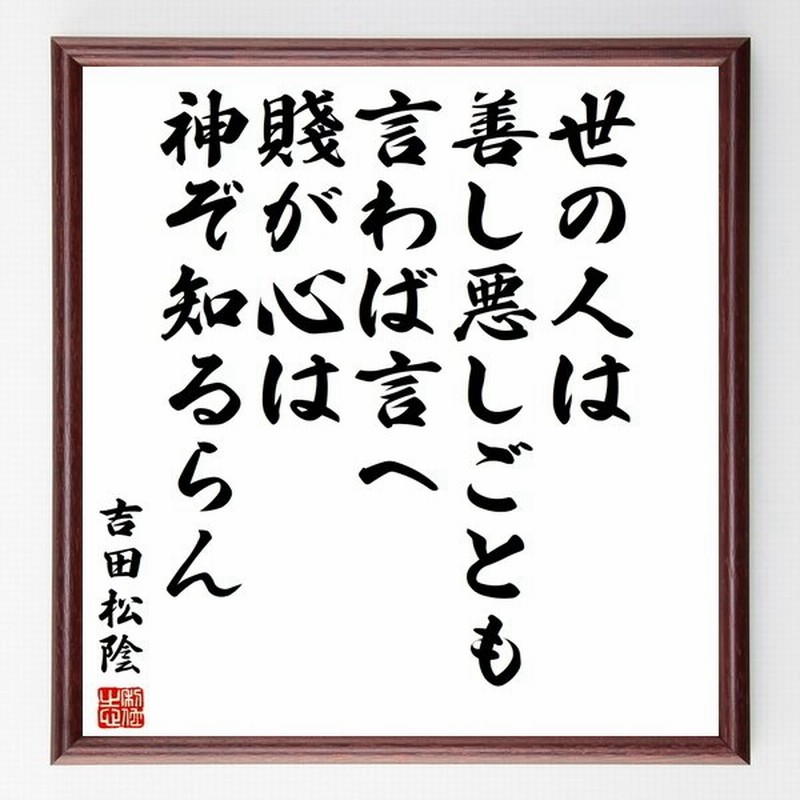 世の人は
善し悪しごとも
言わば言へ
賤が心は
神ぞ知るらん
吉田松陰